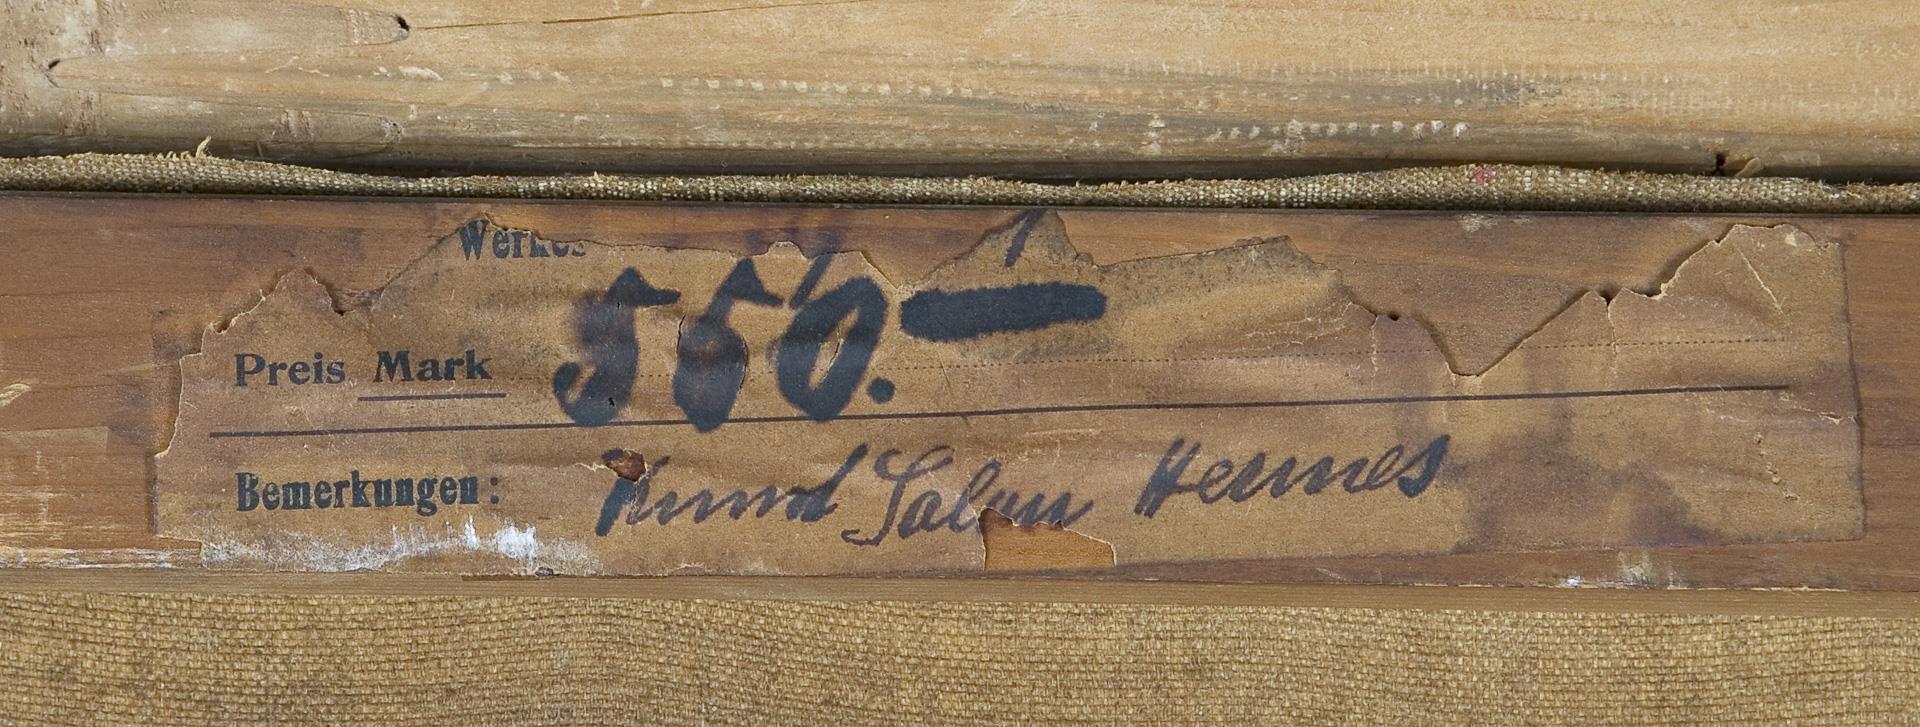 Werkes
Preis Mark 550.—
Bemerkungen: Kunst Salon Hermes